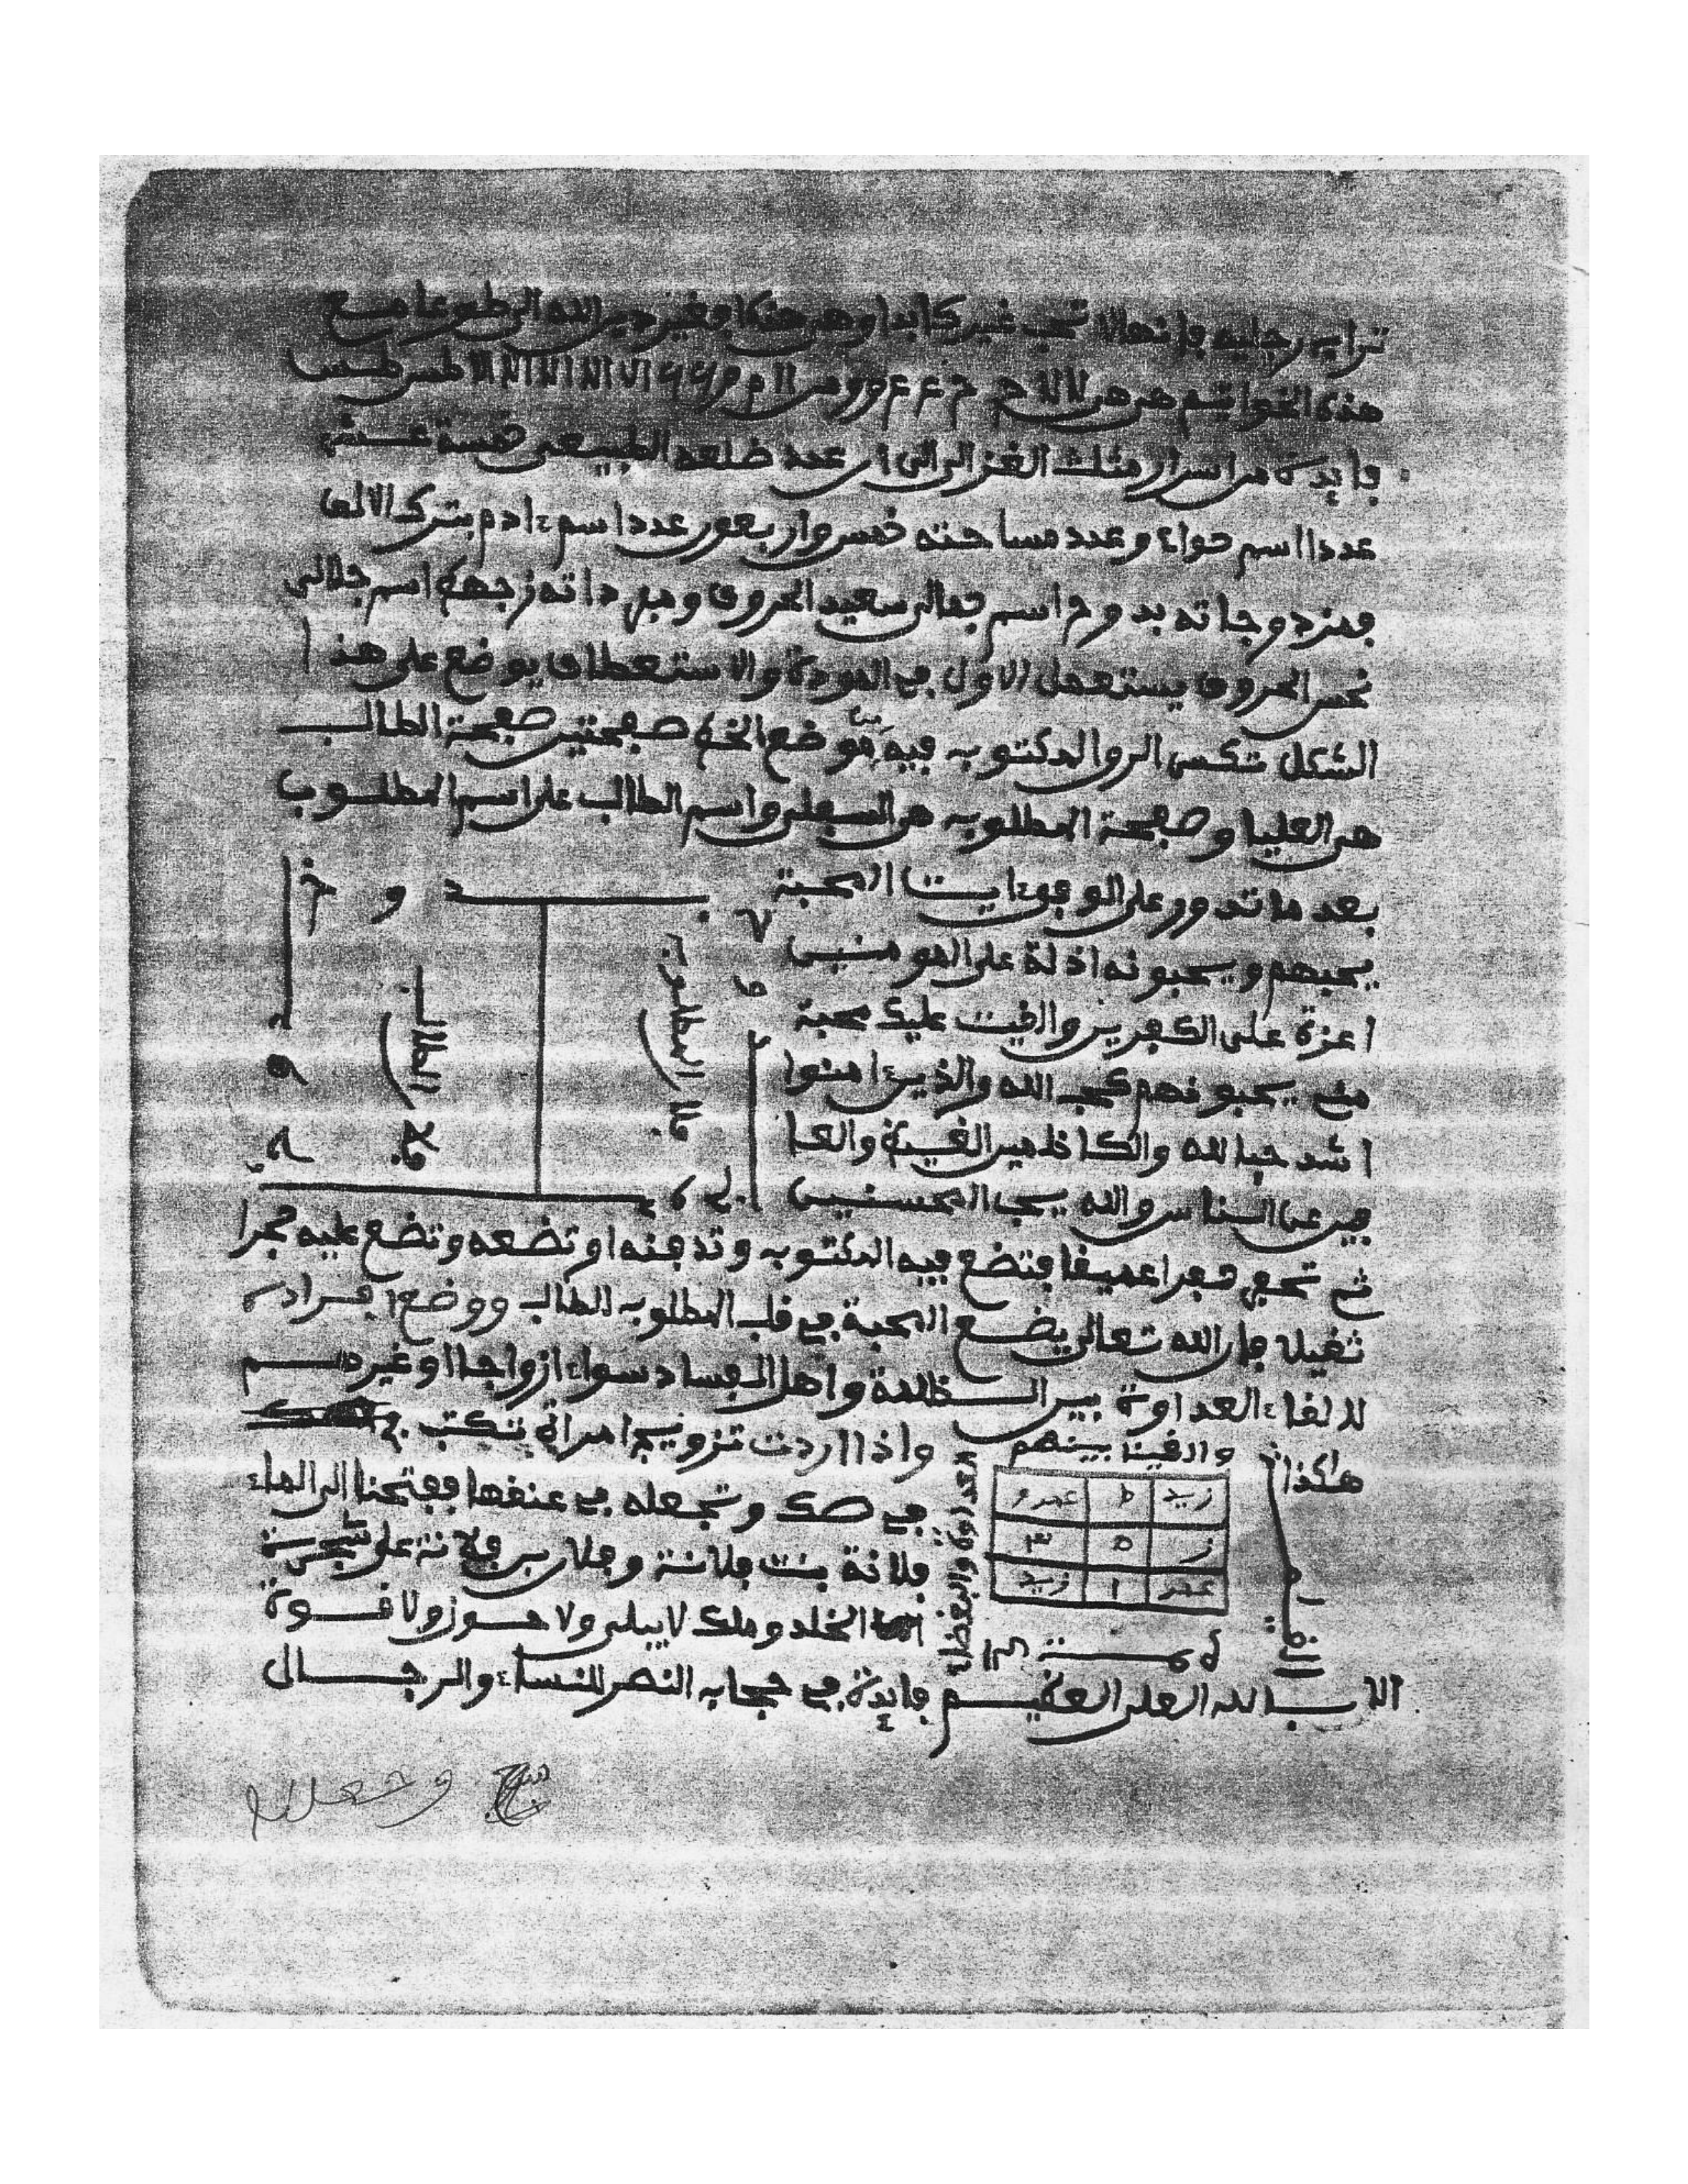 تراب رجليه فإنها لا تحب غيرك ابدا وهي هذه افغير دين الله الى طوعا مع
هذه الخواتم
فايدة من اسرار مثلث الغزالي ان عدد ضلعه الطبيعي خمسة عشر
عدد اسم حواء وعدد مساحته خمس واربعون عدد اسم ءادم بترك الالف
فمزدوجاته بدوح اسم جمالي سعيد الحروف ومفرداته زجهط اسم جلالي
نحس الحروف يستعمل الاول في المودة والاستعطاف يوضع على هذا
الشكل تكسر المكتوب فيه موضع الخط صفحتين صفحة الطالب
هي العليا وصفحة المطلوب هي السفلى واسم الطالب على اسم المطلوب
بعد ما تدور على الوفق ءايت المحبة
يحبهم ويحبونه اذلة على المومنين
اعزة على الكفرين والقيت عليك محبة
مني يحبونهم كحب الله والذين ءامنوا
اشد حبا لله والكاظمين الغيظ والعا
فين عن الناس والله يحب المحسنين
ب د و ح
فلان الطالب
فلان المطلوب
ثم تحفر قبرا عميقا فتضع فيه المكتوب وتدفنه او تضعه وتضع عليه حجرا
ثقيلا فان الله تعالى يضع المحبة في قلب المطلوب للطالب ووضع افراده
لالقاء العداوة بين الظلمة واهل الفساد سواء ازواجا او غيرهم
هاكذا
والقينا بينهم
العداوة والبغضاء
زيد ط عمرو
ز ٥ ٣
عمر ١ زيد
واذا اردت تزويج امراة تكتب
في صك وتجعله في عنقها ففتحنا الى الماء
فلانة بنت فلانة وفلان بن فلانة على شجرة
الخلد وملك لا يبلى ولا حول ولا قوة
الا بالله العلي العظيم فايدة في حجاب النصر للنساء والرجال